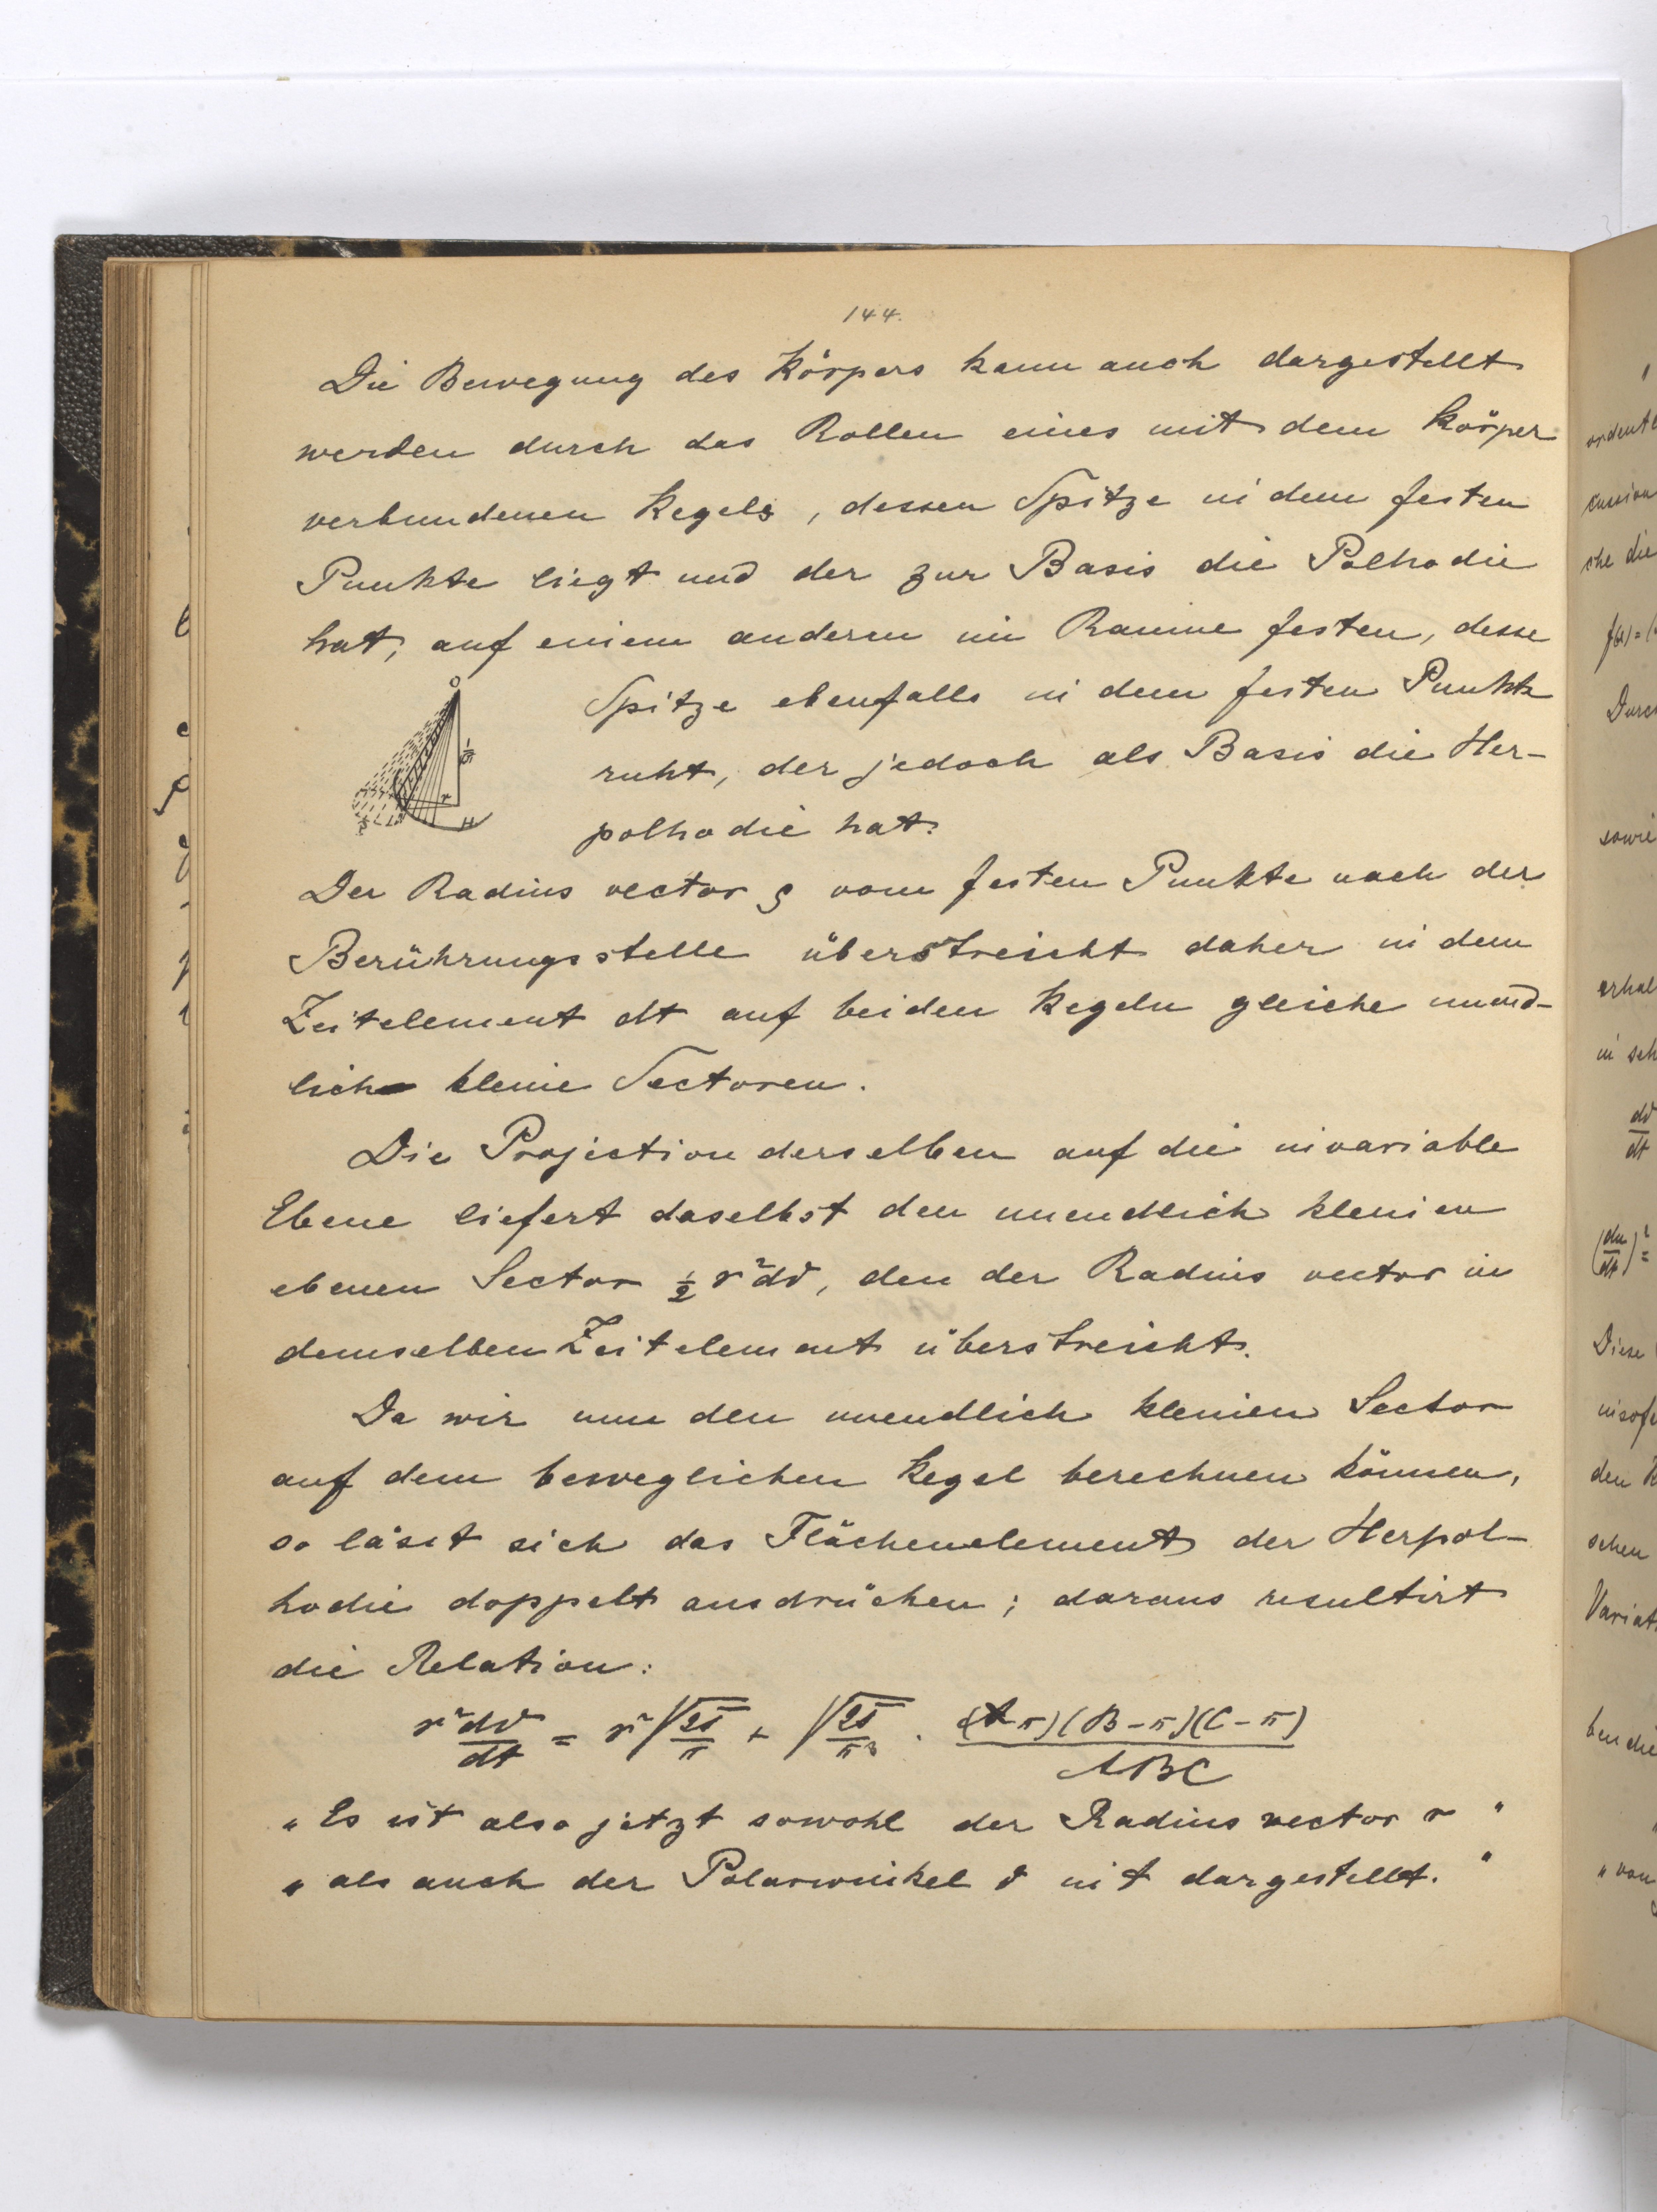 144.
Die Bewegung des Körpers kann auch dargestellt
werden durch das Rollen eines mit dem Körper
verbundenen Kegels, dessen Spitze in dem festen
Punkte liegt und der zur Basis die Polhodie
hat, auf einem anderen im Raume festen, desse
Spitze ebenfalls in dem festen Punkte
ruht, der jedoch als Basis die Her-
polhodie hat.
Der Radius vector ϱ vom festen Punkte nach der
Berührungsstelle überstreicht daher in dem
Zeitelement dt auf beiden Kegeln gleiche unend-
lich kleine Sectoren.
Die Projection derselben auf die invariable
Ebene liefert daselbst den unendlich kleinen
ebenen Sector ½ r²dϑ, den der Radius vector in
demselben Zeitelement überstreicht.
Da wir nun den unendlich kleinen Sector
auf dem beweglichen Kegel berechnen können,
so lässt sich das Flächenelement der Herpol-
hodie doppelt ausdrücken; daraus resultirt
die Relation:
r² dϑ/dt = r² √(2T/π) + √(2T/π³) · (A-π)(B-π)(C-π)/ABC
"Es ist also jetzt sowohl der Radius vector r "
" als auch der Polarwinkel ϑ in t dargestellt. "
O
r
H
ordente
cussion
che die
Durc
sowie
erhal
in sch
dϑ/dt
(du/dt)² =
Diese
insofe
den K
schen
Variat
ben die
" von